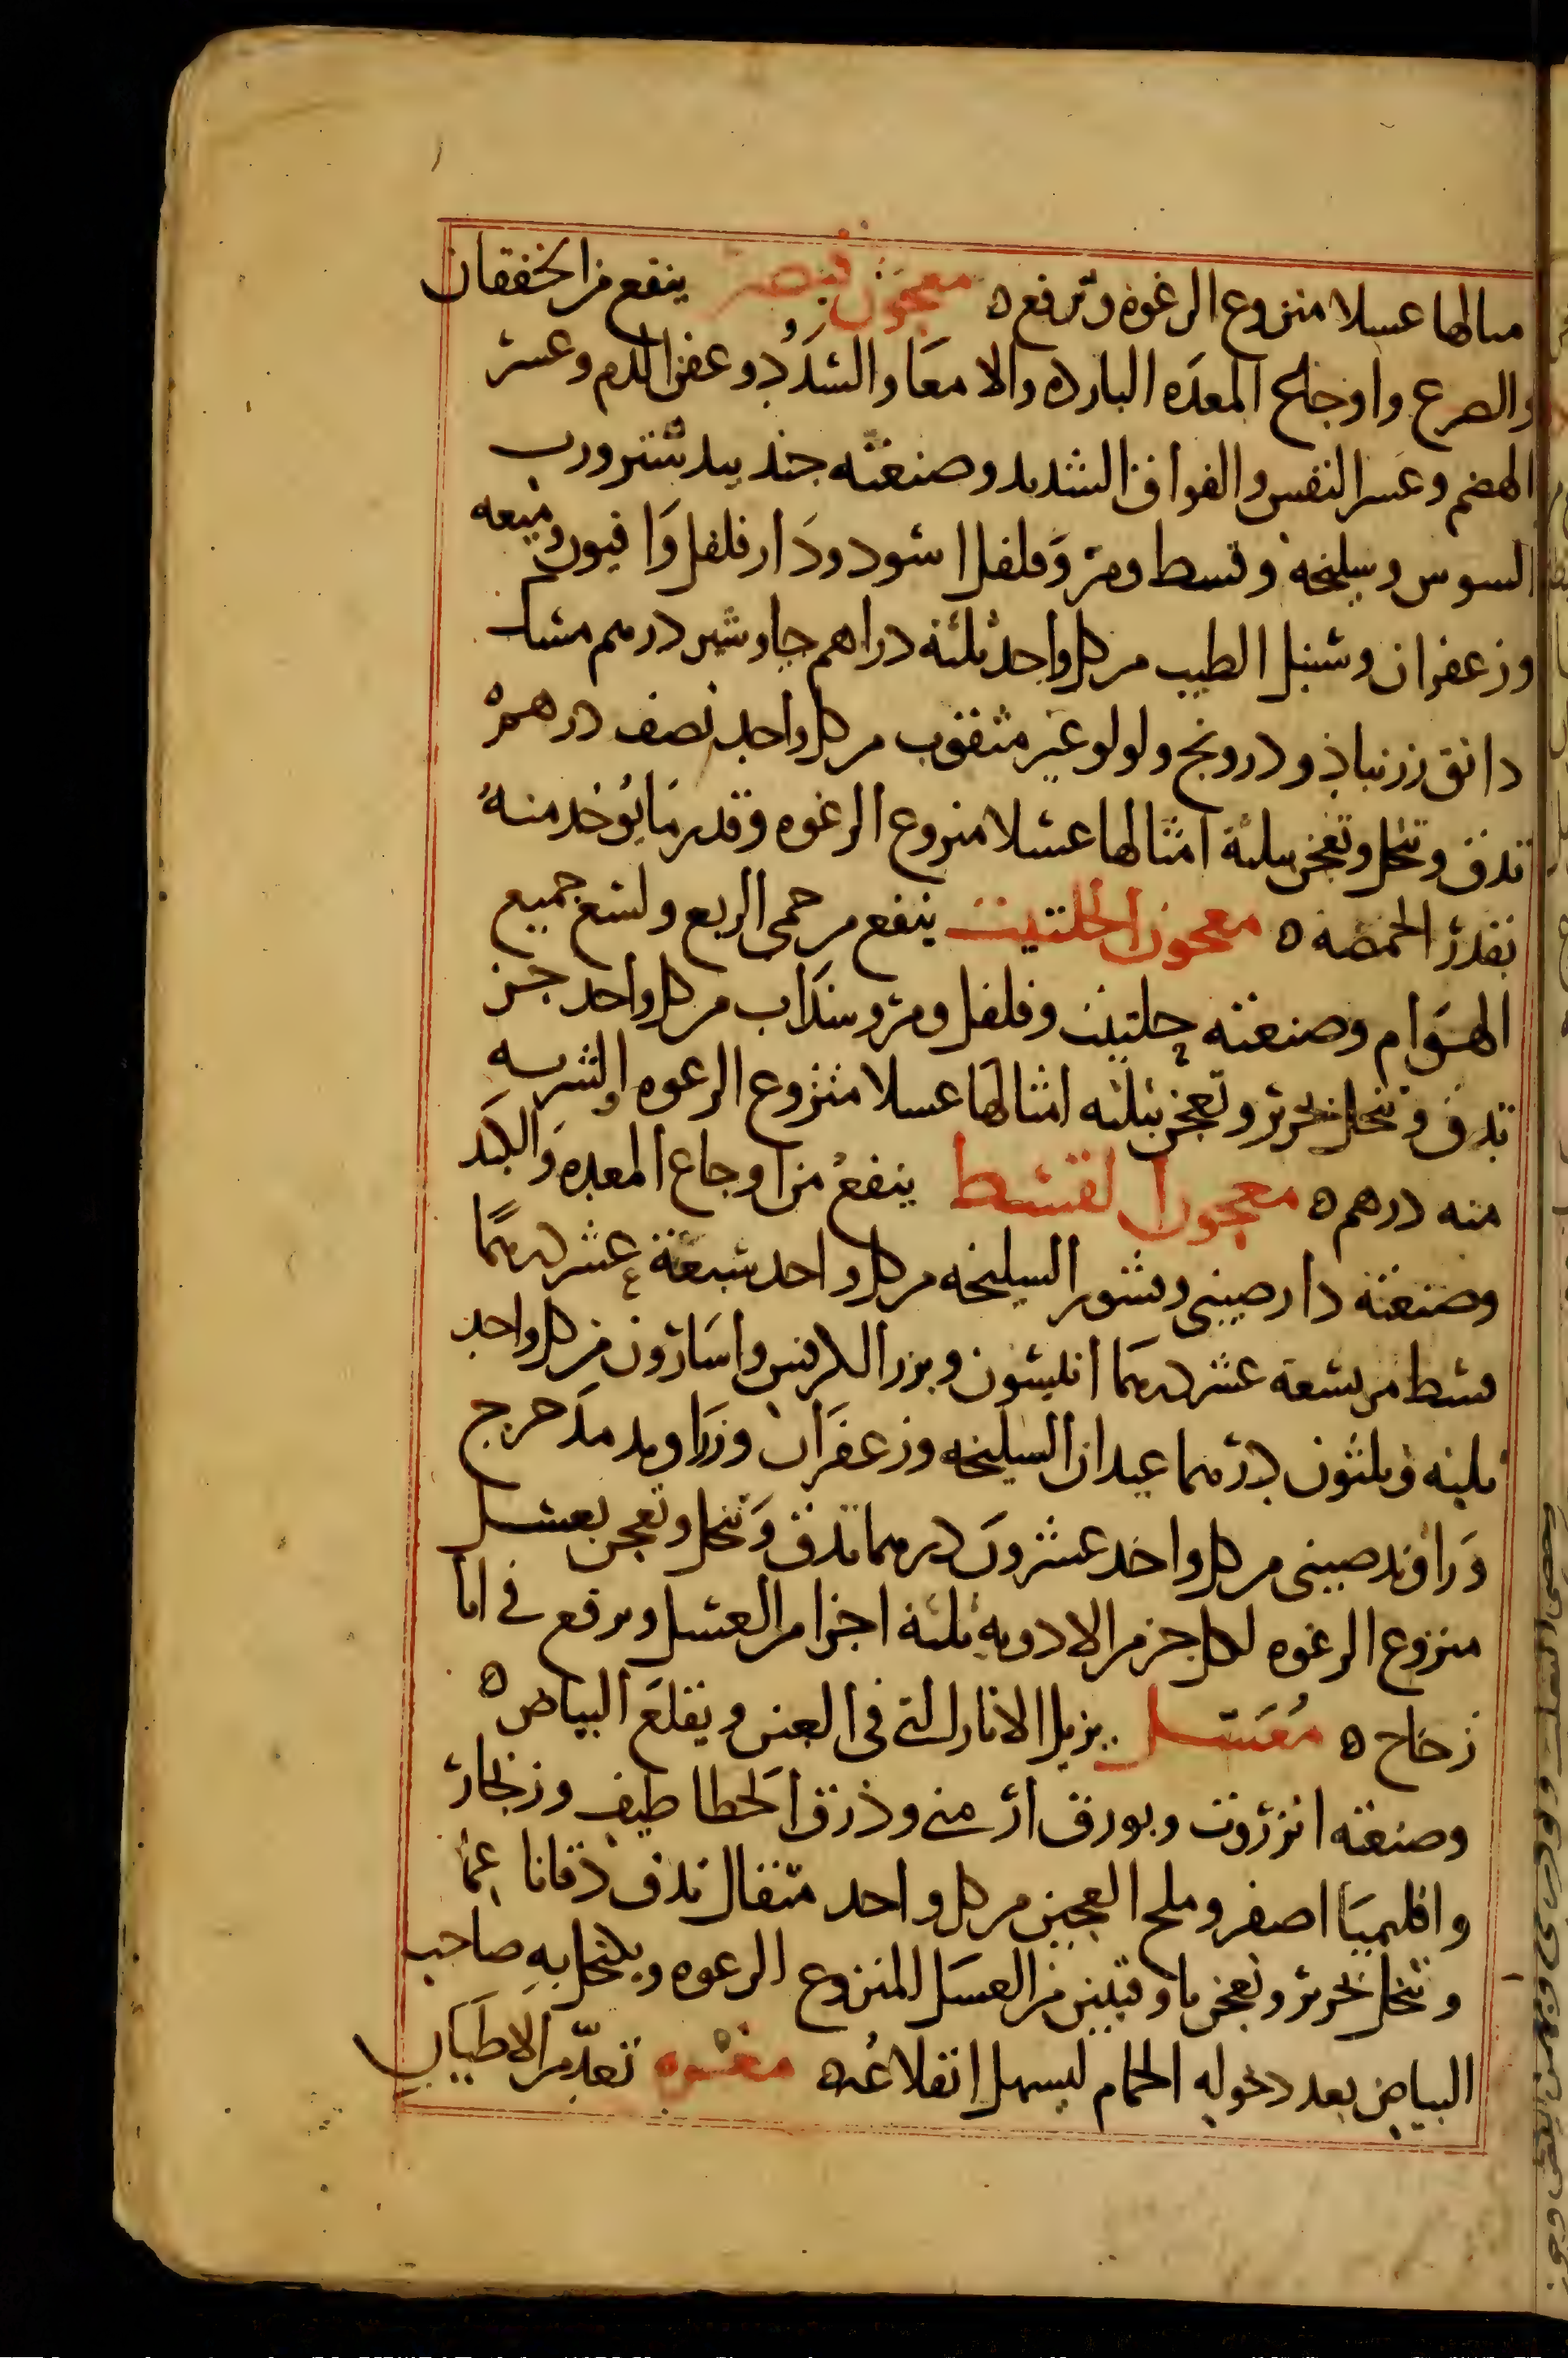 مثالها عسلا منزوع الرغوه وترفع ه معجون قيصر ينفع من الخفقان
والصرع واوجاع المعده البارده والامعا والسدد وعفن الدم وعسر
الهضم وعسر النفس والفواق الشديد وصنعته جند بيدستر ورب
السوس وسليخه وقسط ومر وفلفل اسود ودار فلفل وافيون وميعه
وزعفران وسنبل الطيب من كل واحد ثلثة دراهم جاوشير درهم مسك
دانق زرنباد ودرونج ولولو غير مثقوب من كل واحد نصف درهم ه
تدق وتنخل وتعجن بثلثة امثالها عسلا منزوع الرغوه وقدر ما يوخذ منه
بقدر الحمصه ه معجون الحلتيت ينفع من حمى الربع ولسع جميع
الهوام وصنعته حلتيت وفلفل ومر وسذاب من كل واحد جز
تدق وتنخل بحرير وتعجن بثلثه امثالها عسلا منزوع الرغوه والشربه
منه درهم ه معجون القسط ينفع من اوجاع المعده والكبد
وصنعته دارصيني وقشور السليخه من كل واحد سبعة عشر درهما
قسط مر تسعة عشر درهما انيسون وبزر الكرفس واسارون من كل واحد
ثلثه وثلثون درهما عيدان السليخه وزعفران وزراوند مدحرج
وراوند صيني من كل واحد عشرون درهما تدق وتنخل وتعجن بعسل
منزوع الرغوه لكل جز من الادويه ثلثة اجزا من العسل ويرفع في انا
زجاج ه معسل يزيل الاثار التي في العين ويقلع البياض ه
وصنعته انزروت وبورق ارمني وذرق الخطاطيف وزنجار
واقليميا اصفر وملح العجين من كل واحد مثقال تدق دقا ناعما
وتنخل بحرير وتعجن باوقيتين من العسل المنزوع الرغوه ويكتحل به صاحب
البياض بعد دخوله الحمام ليسهل انقلاعه ه مغشوه تعد من الاطياب